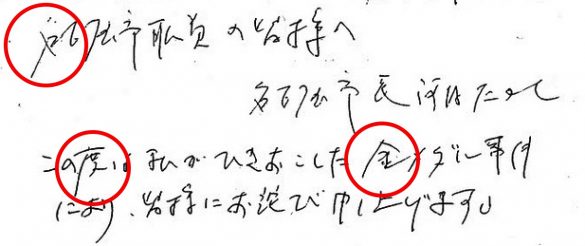 名古屋市職員の皆様へ
名古屋市長河村たかし
この度は私がひきおこした金メダル事件
により、皆様にお詫び申し上げます。